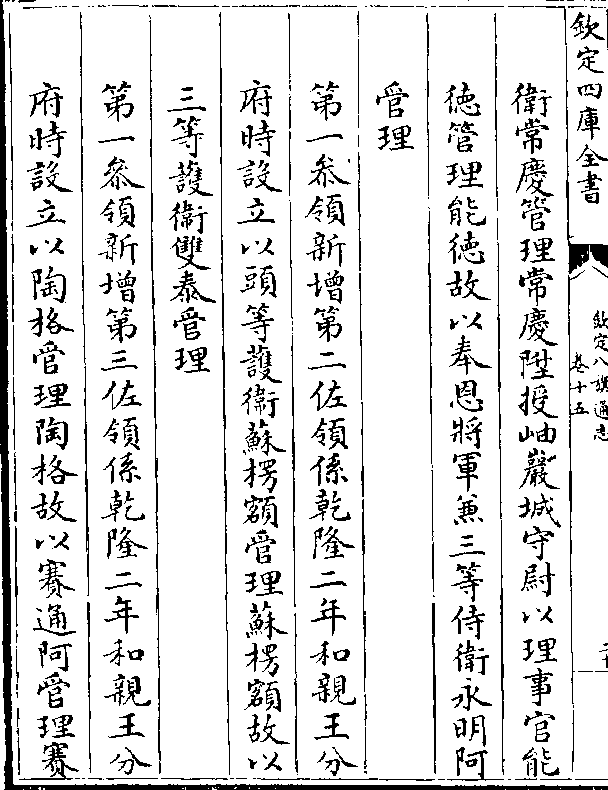 欽定四庫全書
欽定八旗通志
卷十五
衛常慶管理常慶陞授岫巖城守尉以理事官能
德管理能德故以奉恩將軍兼三等侍衛永明阿
管理
第一叅領新增第二佐領係乾隆二年和親王分
府時設立以頭等護衛蘇楞額管理蘇楞額故以
三等護衛雙泰管理
第一叅領新增第三佐領係乾隆二年和親王分
府時設立以陶格管理陶格故以賽通阿管理賽